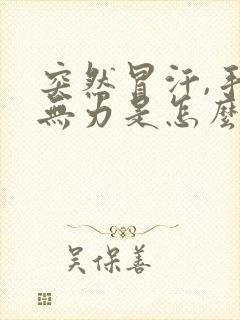 突然冒汗,手
無力是怎麼
吴保善